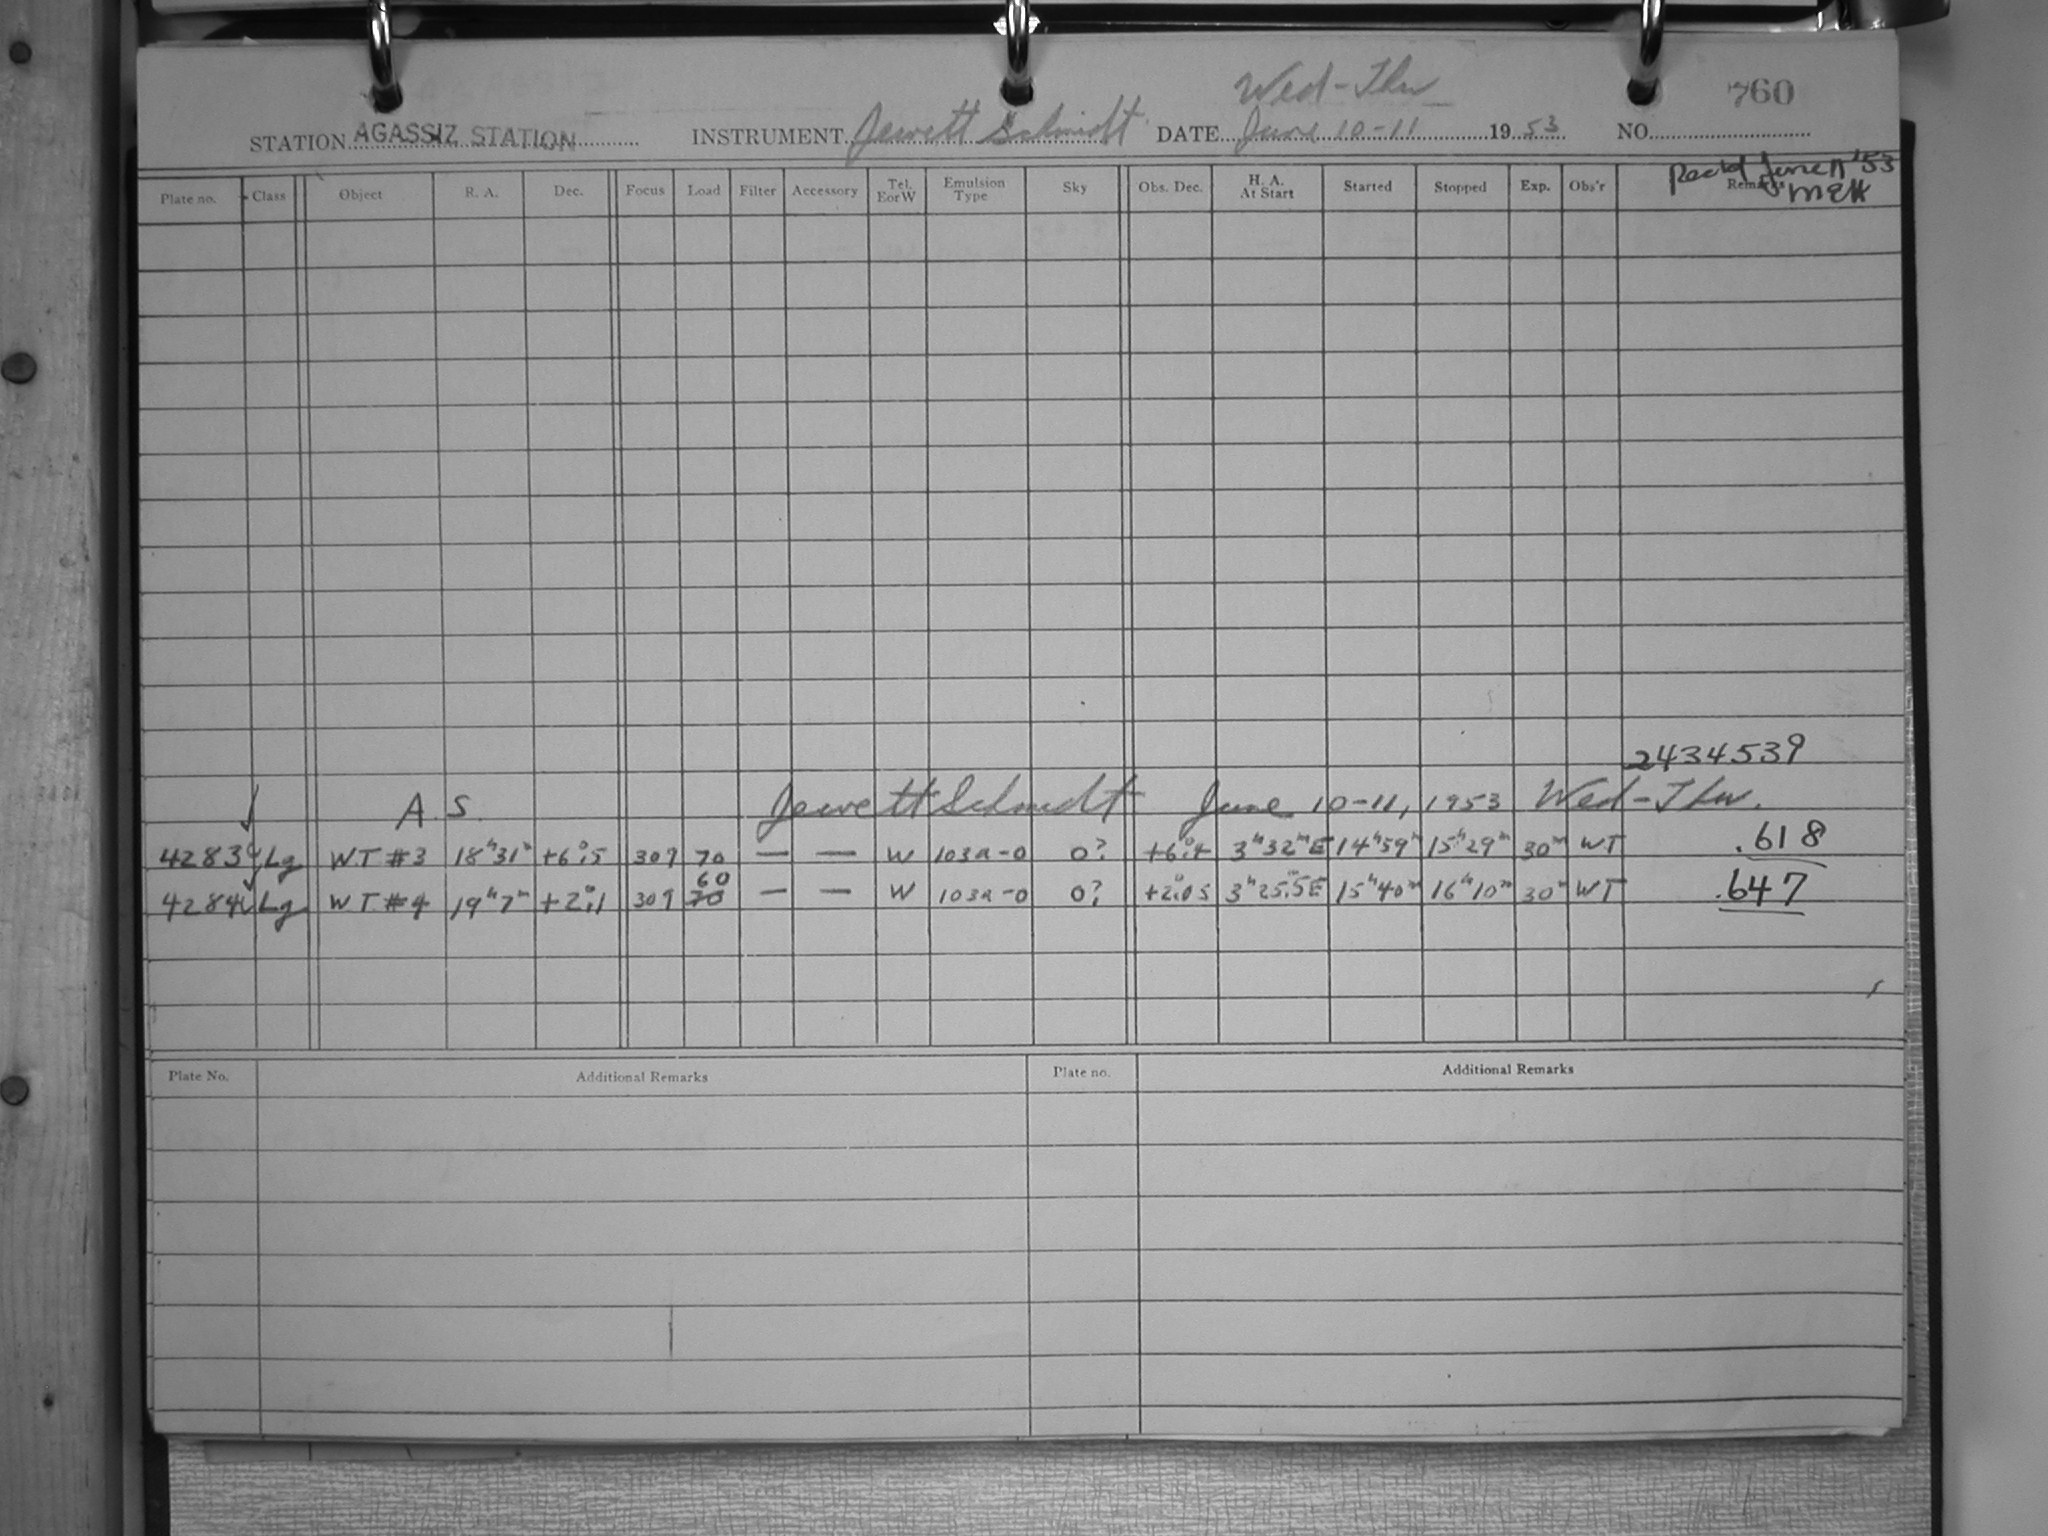 Wed-Thu
760
STATION AGASSIZ STATION INSTRUMENT Jewett Schmidt DATE June 10-11 1953 NO.
Rec'd June 11 '53
Plate no. Class Object R. A. Dec. Focus Load Filter Accessory Tel. EorW Emulsion Type Sky Obs. Dec. H. A. At Start Started Stopped Exp. Obs'r Remarks
2434539
A. S. Jewett Schmidt June 10-11, 1953 Wed-Thu.
4283 Lg WT #3 18h31m +6°.5 309 70 — — W 103a-0 0? +6°.4 3h32mE 14h59m 15h29m 30m WT .618
60
4284 Lg WT #4 19h7m +2°.1 309 70 — — W 103a-0 0? +2°.05 3h25m.5E 15h40m 16h10m 30m WT .647
Plate No. Additional Remarks Plate no. Additional Remarks